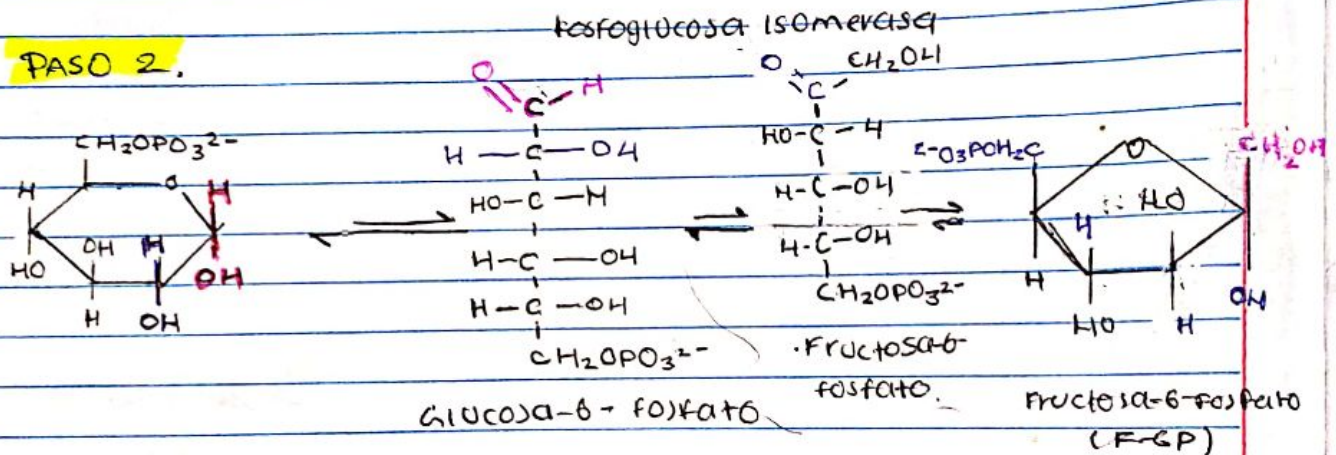 fosfoglucosa isomerasa
PASO 2.
CH₂OPO₃²⁻
H
O
H
HO
OH
H
H
OH
OH
O
C
H
H — C — OH
HO — C — H
H — C — OH
H — C — OH
CH₂OPO₃²⁻
Glucosa-6-fosfato
O
C
CH₂OH
HO — C — H
H — C — OH
H — C — OH
CH₂OPO₃²⁻
Fructosa-6-
fosfato.
2-O₃POH₂C
O
CH₂OH
H
HO
H
HO
H
OH
Fructosa-6-fosfato
(F-6P)